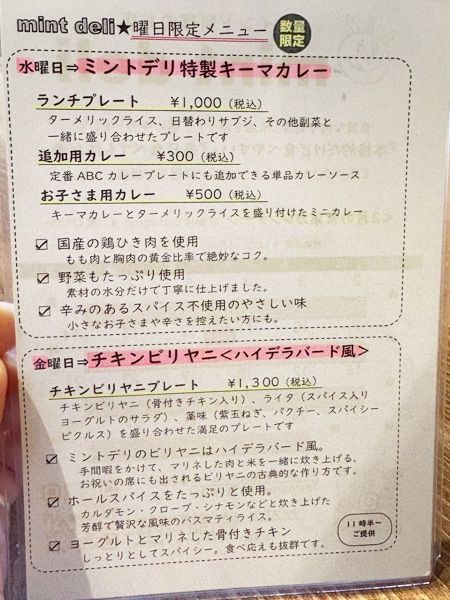 mint deli★曜日限定メニュー
数量
限定
水曜日⇒ミントデリ特製キーマカレー
ランチプレート ¥1,000（税込）
ターメリックライス、日替わりサブジ、その他副菜と
一緒に盛り合わせたプレートです
追加用カレー ¥300（税込）
定番ABCカレープレートにも追加できる単品カレーソース
お子さま用カレー ¥500（税込）
キーマカレーとターメリックライスを盛り付けたミニカレー
☑ 国産の鶏ひき肉を使用
もも肉と胸肉の黄金比率で絶妙なコク。
☑ 野菜もたっぷり使用
素材の水分だけで丁寧に仕上げました。
☑ 辛みのあるスパイス不使用のやさしい味
小さなお子さまや辛さを控えたい方にも。
金曜日⇒チキンビリヤニ＜ハイデラバード風＞
チキンビリヤニプレート ¥1,300（税込）
チキンビリヤニ（骨付きチキン入り）、ライタ（スパイス入り
ヨーグルトのサラダ）、薬味（紫玉ねぎ、パクチー、スパイシー
ピクルス）を盛り合わせた満足のプレートです
☑ ミントデリのビリヤニはハイデラバード風。
手間暇をかけて、マリネした肉と米を一緒に炊き上げる、
お祝いの席にも出されるビリヤニの古典的な作り方です。
☑ ホールスパイスをたっぷりと使用。
カルダモン・クローブ・シナモンなどと炊き上げた
芳醇で贅沢な風味のバスマティライス。
☑ ヨーグルトとマリネした骨付きチキン
しっとりとしてスパイシー。食べ応えも抜群です。
11時半～
ご提供